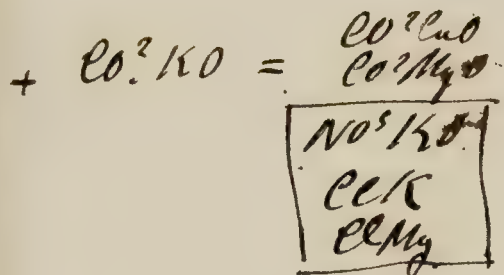 CO²CaO
+ CO².KO = CO²MgO
NO⁵KO
ClK
ClMg